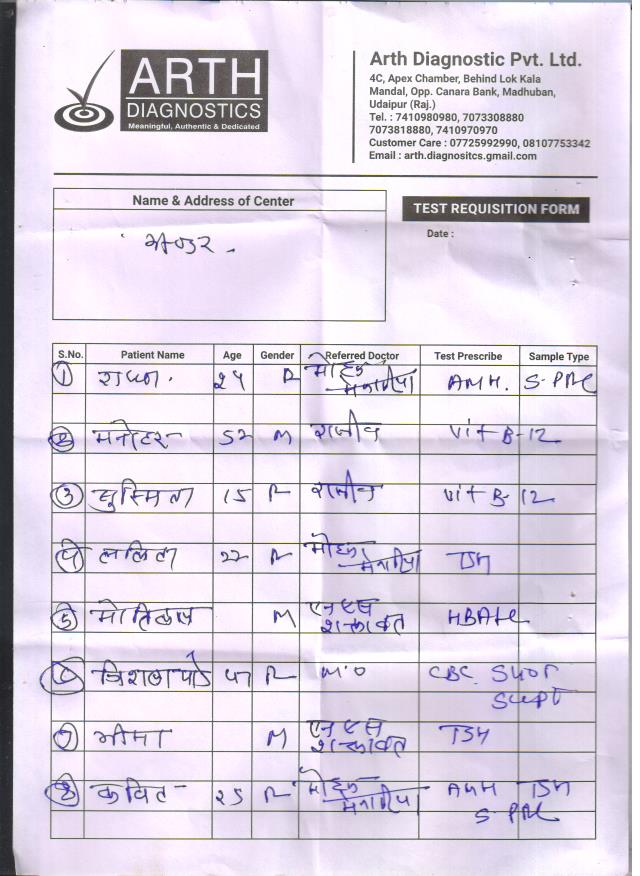 ARTH
DIAGNOSTICS
Meaningful, Authentic & Dedicated
Arth Diagnostic Pvt. Ltd.
4C, Apex Chamber, Behind Lok Kala
Mandal, Opp. Canara Bank, Madhuban,
Udaipur (Raj.)
Tel. : 7410980980, 7073308880
7073818880, 7410970970
Customer Care : 07725992990, 08107753342
Email : arth.diagnositcs.gmail.com
Name & Address of Center
TEST REQUISITION FORM
Date :
S.No. Patient Name Age Gender Referred Doctor Test Prescribe Sample Type
1 24 मोहन AMH.
2 मनोहर 52 M राजीव Vit B-12
3 सुस्मिता 15 राजीव Vit B-12
4 ललिता 22 मोहन TSH
5 मोतिलाल M एन एस शक्तावत
6 M.O CBC
7 भीमा M एन एस शक्तावत TSH
8 कविता 25 मोहन AMH TSH